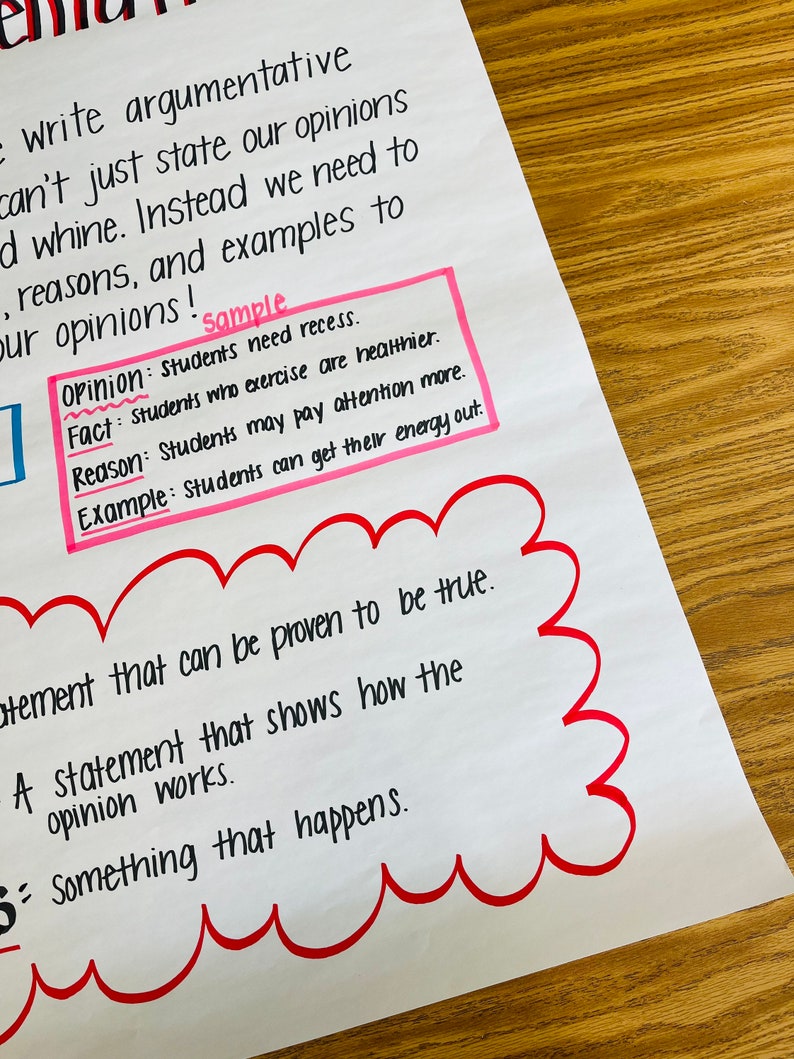 write argumentative
can't just state our opinions
whine. Instead we need to
, reasons, and examples to
our opinions!
sample
Opinion: Students need recess.
Fact: Students who exercise are healthier.
Reason: Students may pay attention more.
Example: Students can get their energy out.
that can be proven to be true.
A statement that shows how the
opinion works.
: Something that happens.